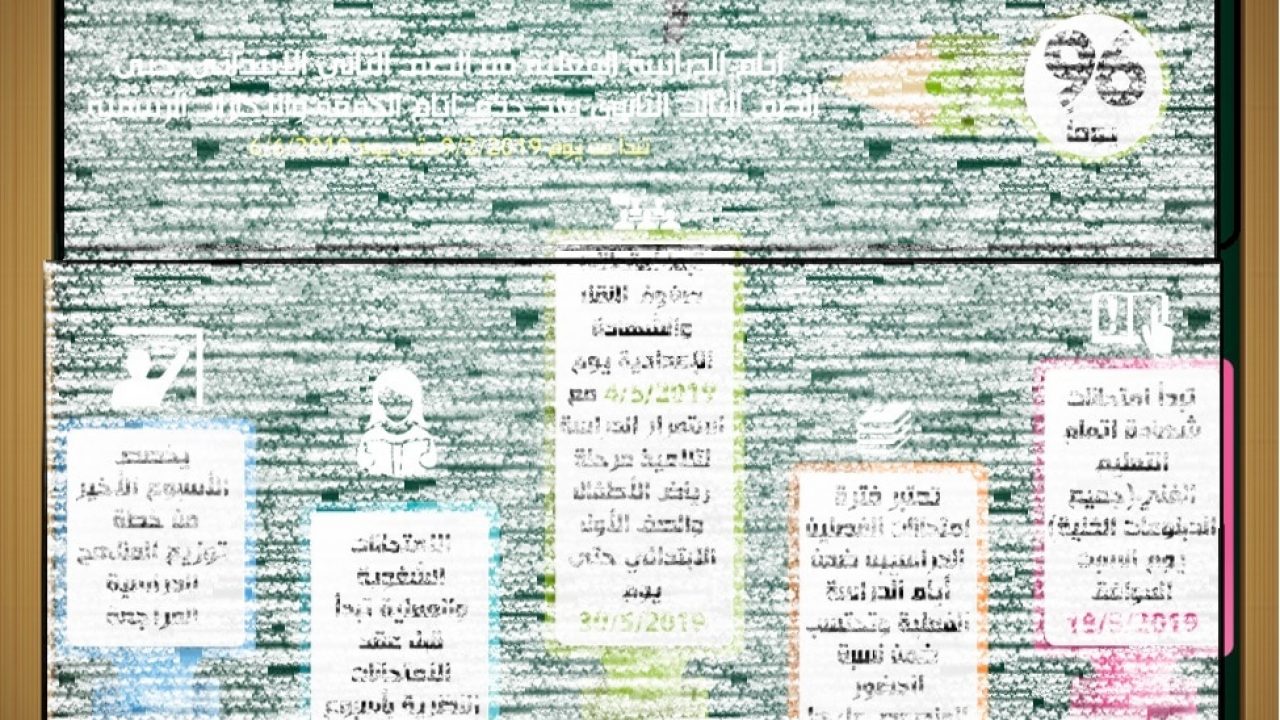 96
يوماً
أيام الدراسية الفعلية من الصف الثاني الابتدائي حتى
الصف الثالث الثانوي بعد حذف أيام الجمعة والأجازات الرسمية
تبدأ من يوم 9/2/2019 حتى يوم 6/6/2019
تبدأ امتحانات
شهادة اتمام
التعليم
الفني (جميع
الدبلومات الفنية)
يوم السبت
الموافق
18/5/2019
تعتبر فترة
امتحانات الفصلين
الدراسيين ضمن
أيام الدراسة
الفعلية وتحتسب
ضمن نسبة
الحضور
صفوف النقل
والشهادة
الإعدادية يوم
4/5/2019 مع
استمرار الدراسة
لتلاميذ مرحلة
رياض الأطفال
والصف الأول
الابتدائي حتى
يوم
30/5/2019
الامتحانات
الشفهية
والعملية تبدأ
قبل عقد
الامتحانات
النظرية بأسبوع
يخصص
الأسبوع الأخير
من خطة
توزيع المناهج
الدراسية
للمراجعة